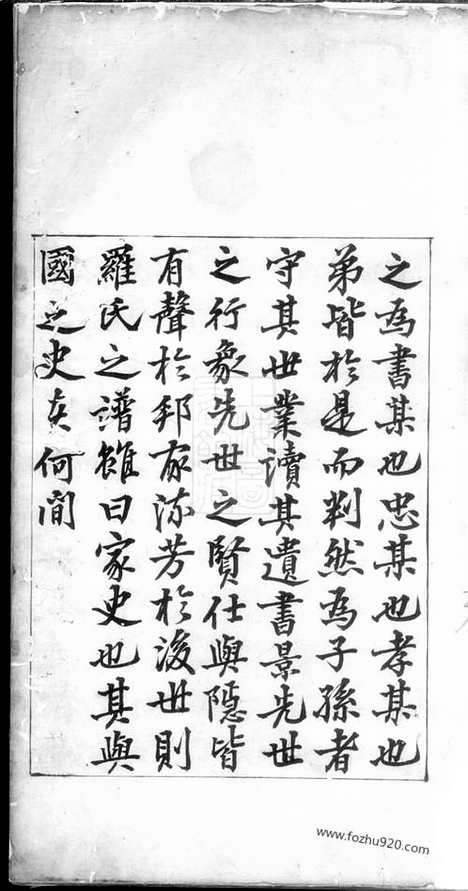 之為書某也忠某也孝某也
弟皆於是而判然為子孫者
守其世業讀其遺書景先世
之行象先世之賢仕與隱皆
有聲於邦家流芳於後世則
羅氏之譜雖曰家史也其與
國之史亥何間
www.fozhu920.com